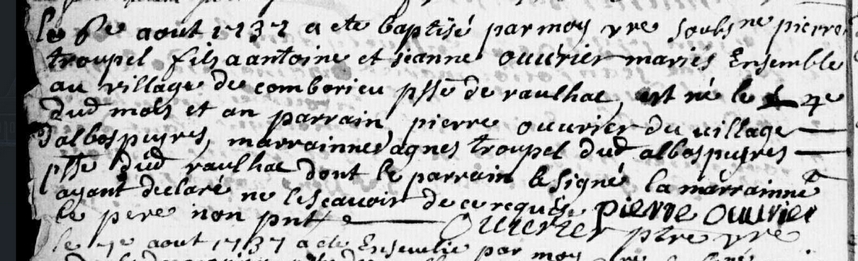 le 6e aout 1737 a ete baptisé par moy vre soubs ne pierre
troupel fils a antoine et jeanne ouvrier mariés Ensemble
au village de comborieu psse de raulhac, est né le 4e
dud mois et an parrain pierre ouvrier du village
dalbospuyres, marrainne agnes troupel dud albospuyres
psse dud raulhac dont le parrain a signé la marrainne
ayant declaré ne le scavoir de ce requise pierre ouvrier
le pere non pnt ouvrier ptre vre
le 7e aout 1737 a ete Ensevelie par moy